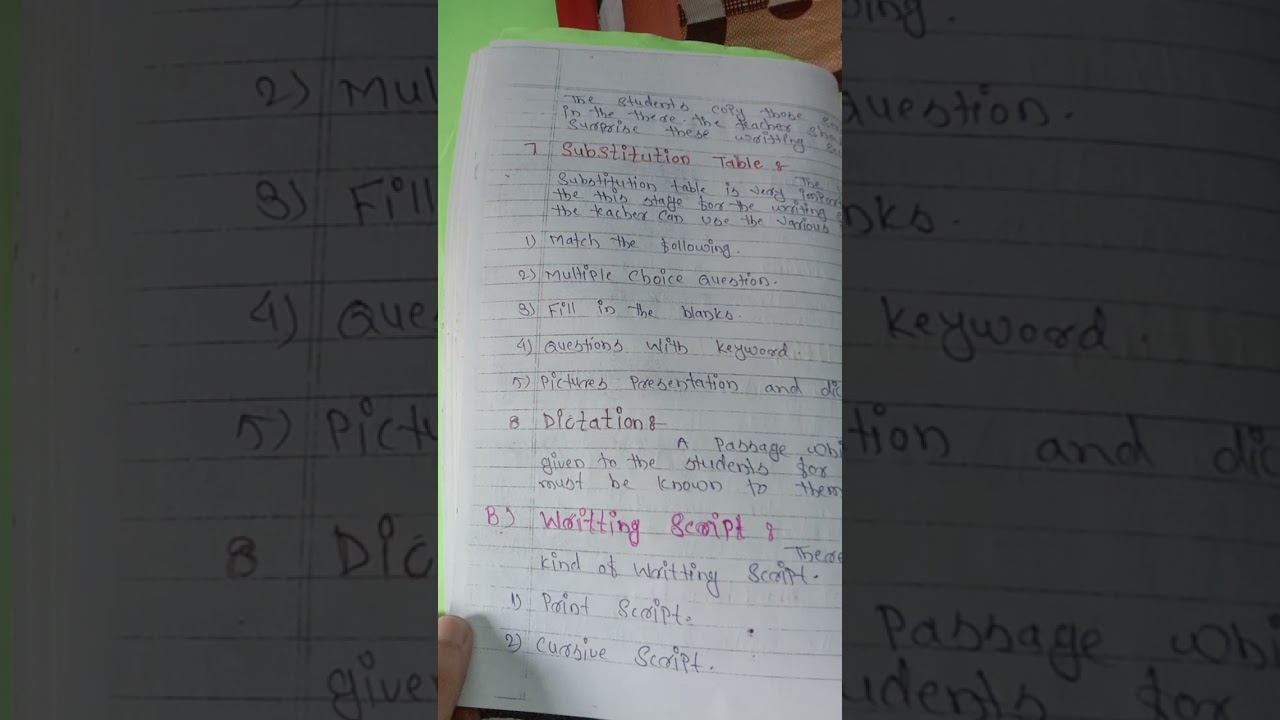 The students copy those
in the there. the teacher
Surprise these writting
7 Substitution Table :
The
Substitution table is very
the this stage for the writing
the teacher can use the various
1) Match the following.
2) Multiple choice Question.
3) Fill in the blanks.
4) Questions With Keyword.
5) Pictures Presentation and dic
8 Dictation :
A Passage whi
given to the students for
must be known to them
B) Writting Script :
There
kind of Writting Script.
1) Print Script.
2) Cursive Script.